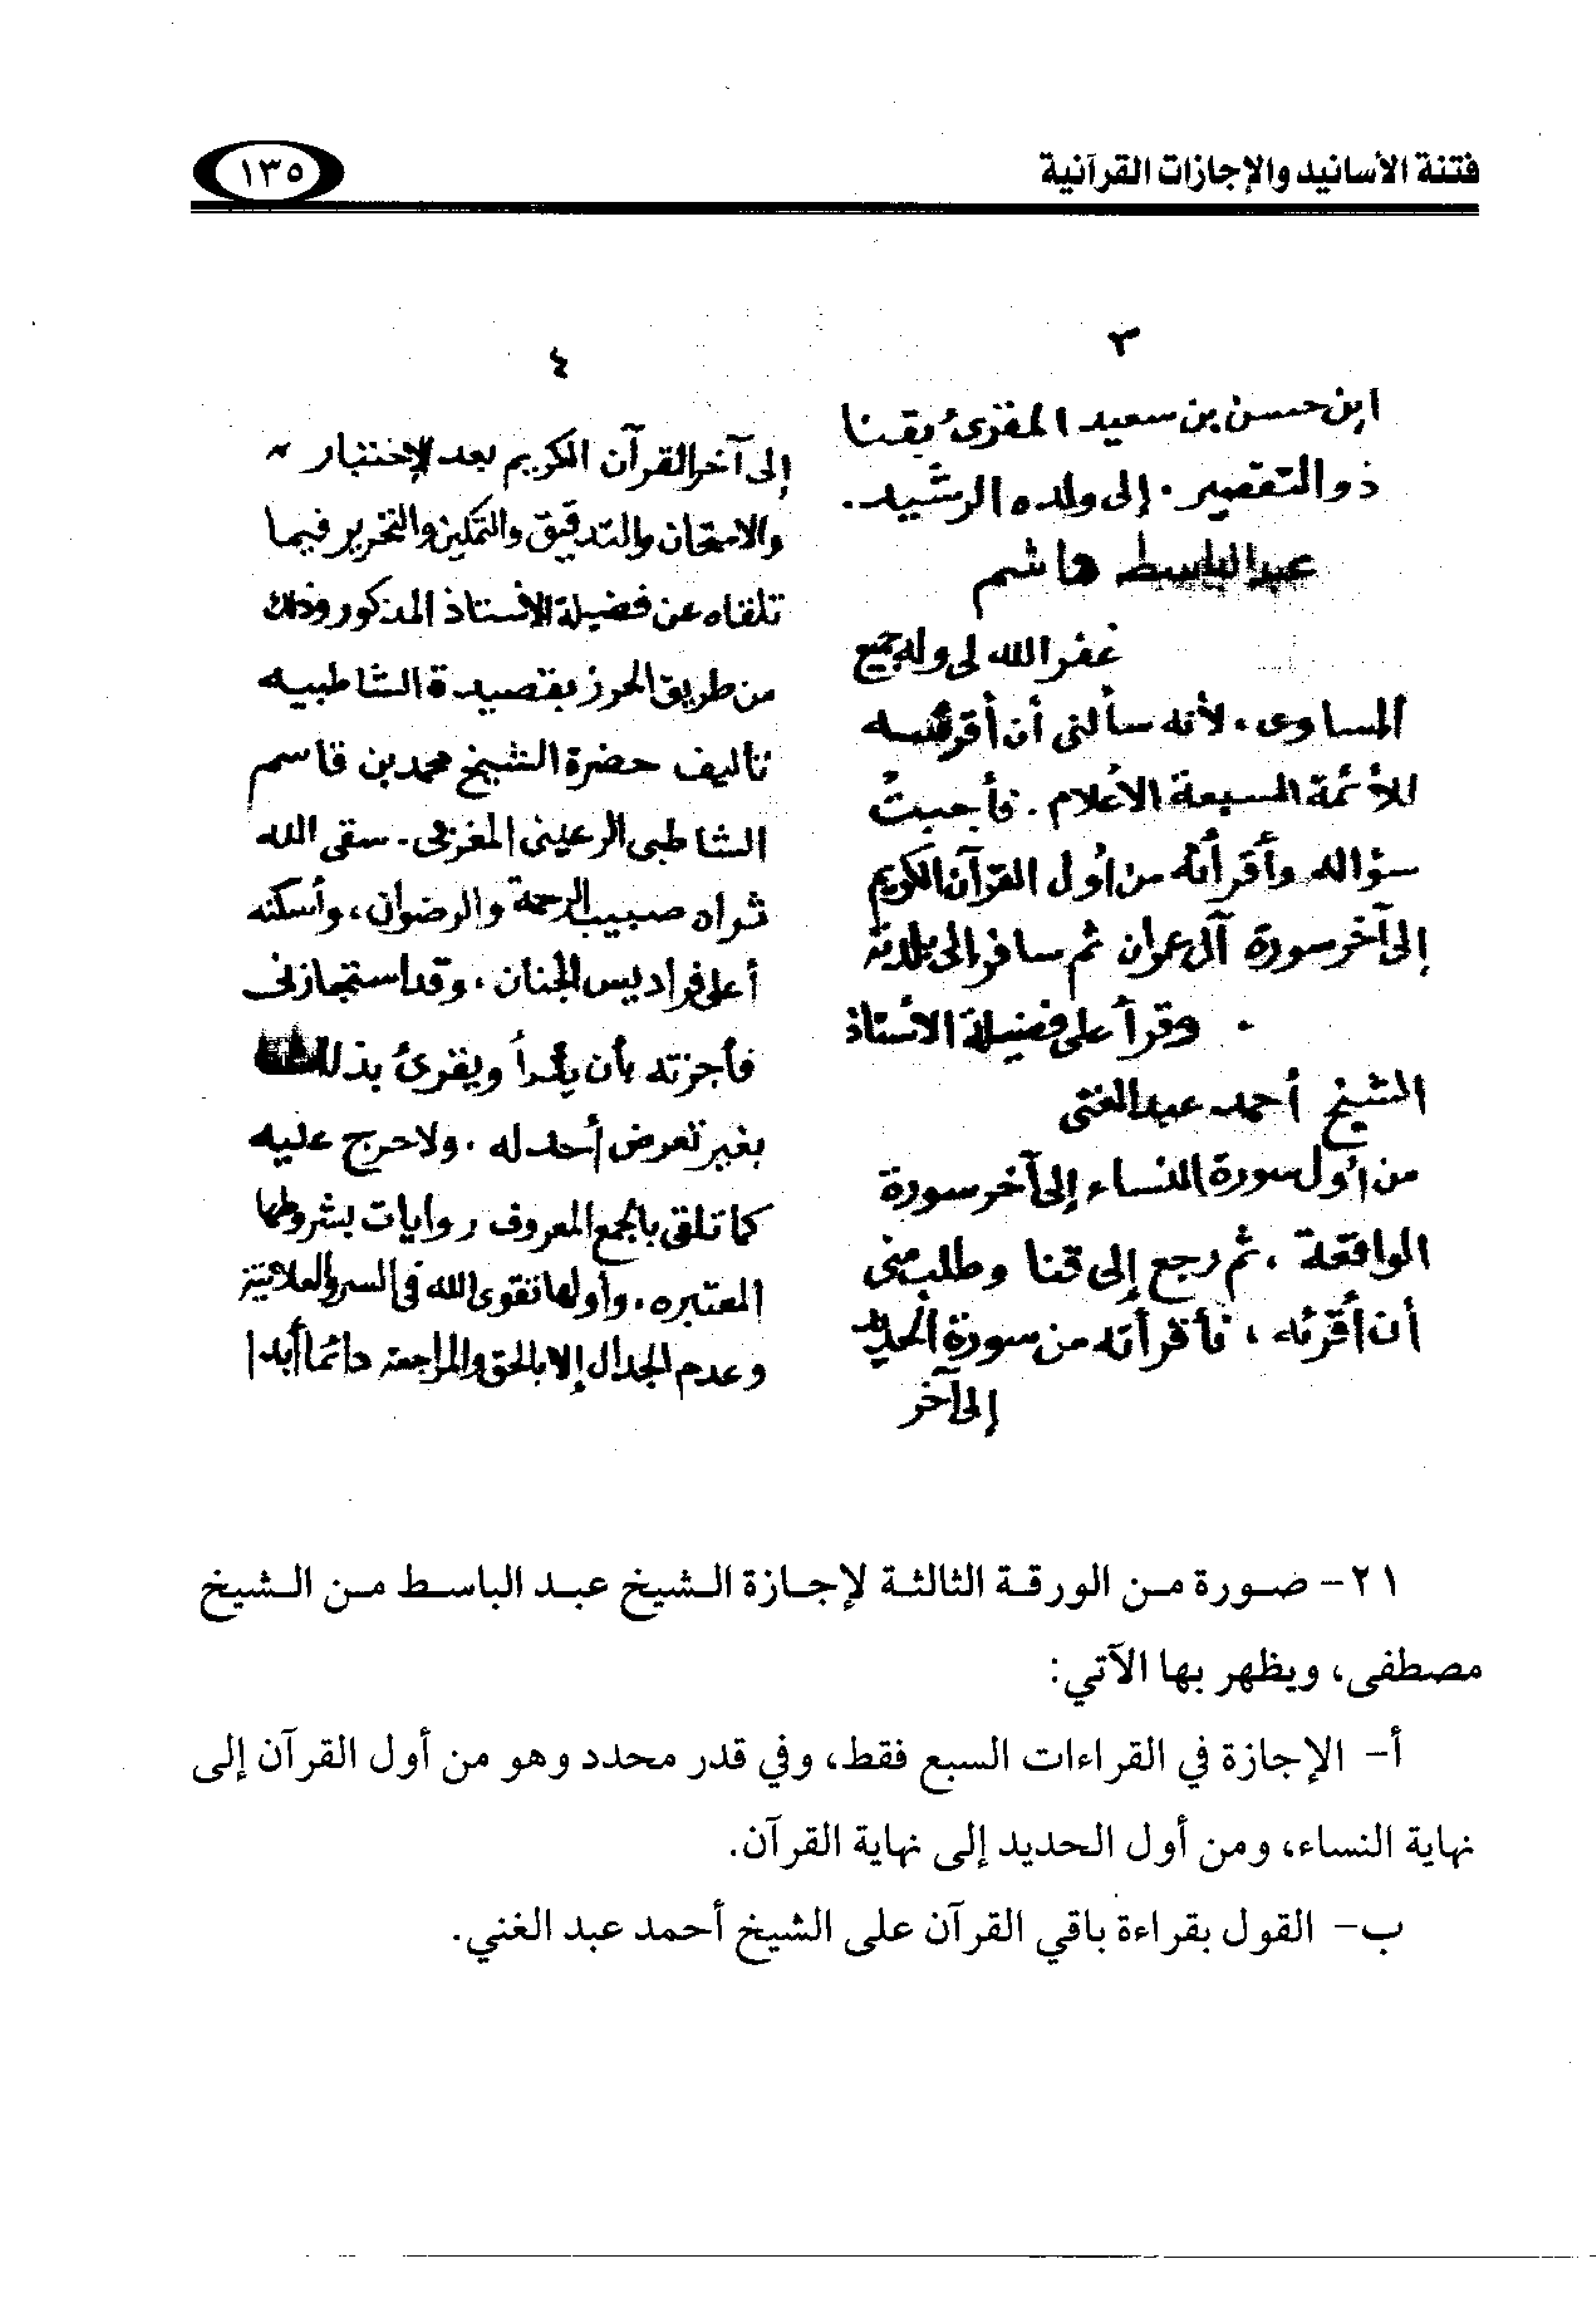 فتنة الأسانيد والإجازات القرآنية
١٣٥
٣
ابن حسن بن سعيد المقرئ بقنا
ذو التقصير . إلى ولده الرشيد .
عبد الباسط هاشم
غفر الله لى وله جميع
المساوى . لأنه سألنى أن أقرئـه
للأئمة السبعة الأعلام . فأجبتُ
سؤاله وأقرأته من أول القرآن الكريم
إلى آخر سورة آل عمران ثم سافر إلى بلدته
. وقرأ على فضيلة الأستاذ
الشيخ أحمد عبد الغنى
من أول سورة النساء إلى آخر سورة
الواقعة ، ثم رجع إلى قنا وطلب منى
أن أقرئه ، فأقرأته من سورة الحديد
إلى آخر
٤
إلى آخر القرآن الكريم بعد الإختبار
والامتحان والتدقيق والتمكين والتحرير فيما
تلقاه عن فضيلة الأستاذ المذكور وذلك
من طريق الحرز بقصيدة الشاطبيه
تأليف حضرة الشيخ محمد بن قاسم
الشاطبى الرعينى المغربى - سقى الله
ثراه صبيب الرحمة والرضوان ، وأسكنه
أعلى فراديس الجنان . وقد استجازنى
فأجزته بأن يقرأ ويقرئ بذلك
بغير تعرض أحد له . ولا حرج عليه
كما تلقى بالجمع المعروف روايات بشروطها
المعتبره . وأولها تقوى الله فى السر والعلانية
وعدم الجدال إلا بالحق والمراجعة دائما أبدا
٢١- صورة من الورقة الثالثة لإجازة الشيخ عبد الباسط من الشيخ
مصطفى، ويظهر بها الآتي:
أ- الإجازة في القراءات السبع فقط، وفي قدر محدد وهو من أول القرآن إلى
نهاية النساء، ومن أول الحديد إلى نهاية القرآن.
ب- القول بقراءة باقي القرآن على الشيخ أحمد عبد الغني.